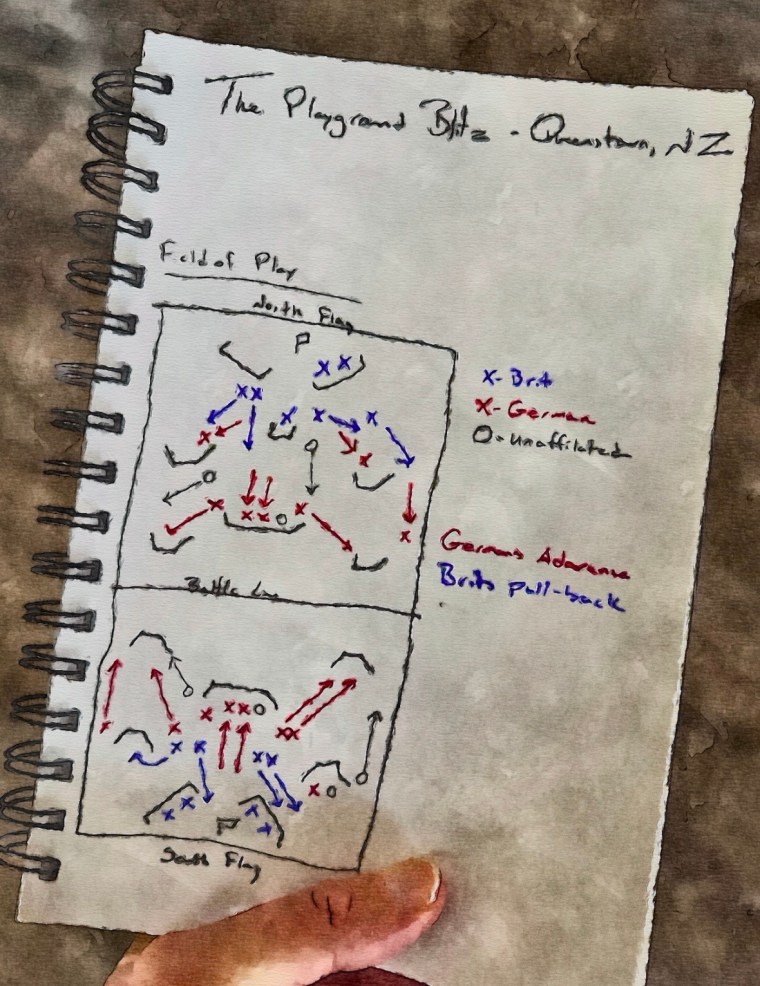 The Playground Blitz - Queenstown, NZ
Field of Play
North Flag
P
X X
X X
X X X
X X
X X X X
X
Battle Line
X X X X
X X
X X
X X X X
X
X X X
P X
South Flag
X- Brit
X- German
O- Unaffiliated
Germans Advance
Brits pull-back